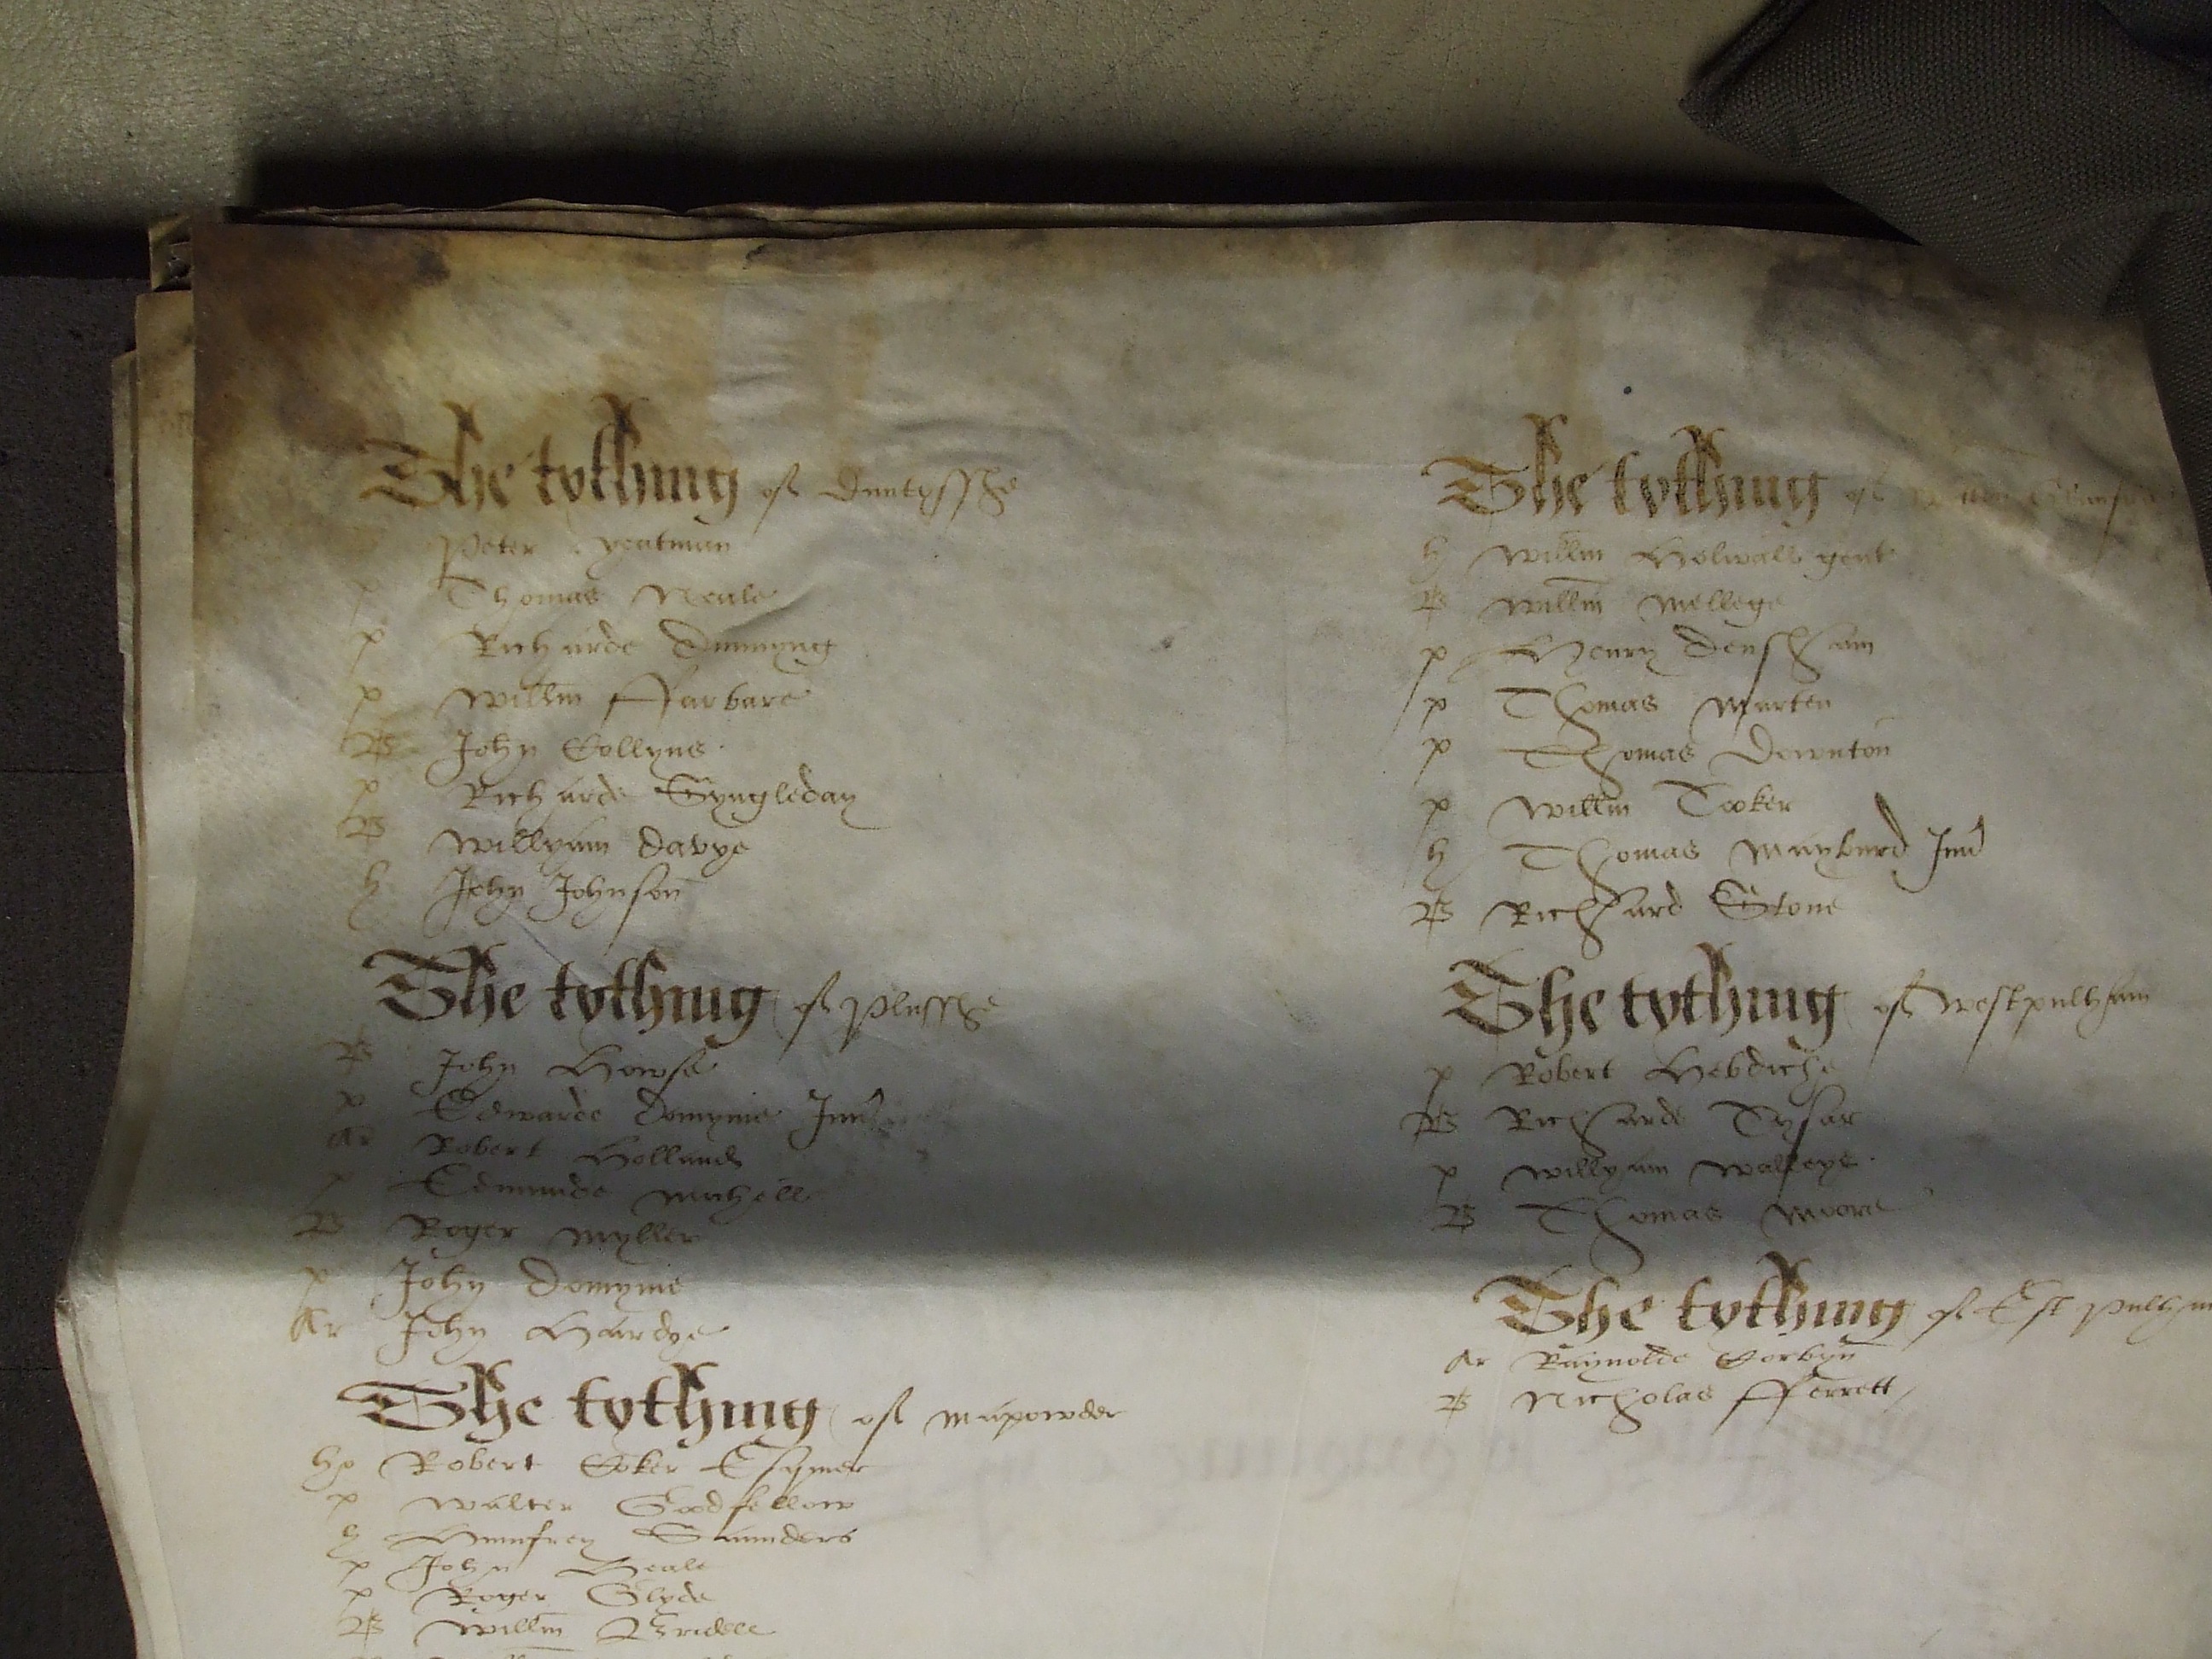 The tythyng of Duntysshe
Peter yeatman
p Thomas Neale
p Richarde Dunnyng
p Willm ffarbare
B John Collyns
p Richarde Syngleday
B Willyam Davye
h John Johnson
The tythyng of plusshe
B John Howse
p Edwarde Domynie Junr
Ar Robert Holland
p Edmunde Michell
B Roger Myller
p John Domynie
Ar John Hardye
The tythyng of mapowder
hp Robert Coker Esquier
p Walter Goodfellow
h Humfrey Saunders
p John Beale
p Roger Clyde
B Willm Bridell
The tythyng of
h Willm Holwall gent
B Willm Mellege
p Henry Densham
p Thomas Marten
p Thomas Downton
p Willm Tooker
h Thomas Mayburd Junr
B Richard Stone
The tythyng of Westpulham
p Robert Hebdiche
B Richarde Tysar
p Willyam
B Thomas Moore
The tythyng of Est pulham
Ar Raynolde Corbyn
B Nicholas fferrett